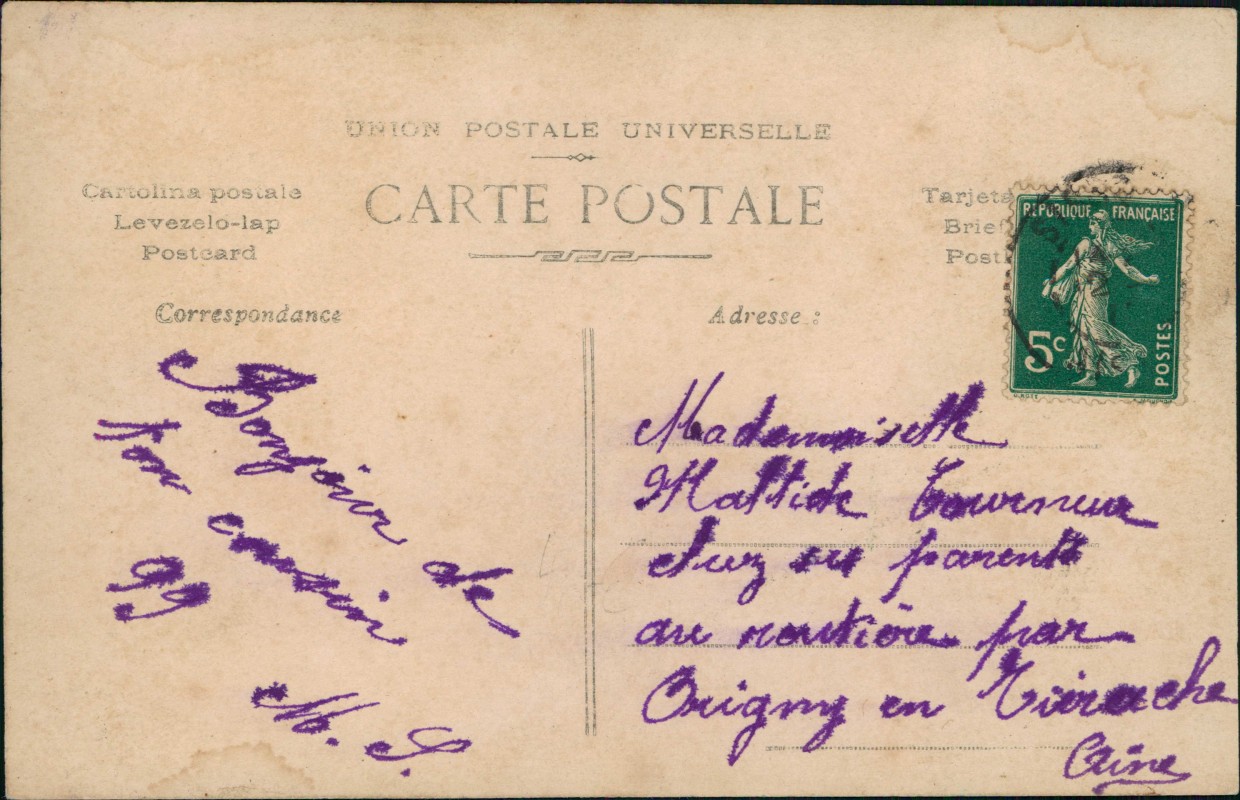 UNION POSTALE UNIVERSELLE
CARTE POSTALE
Cartolina postale
Levezelo-lap
Postcard
Tarjeta
Brief
Post
RÉPUBLIQUE FRANÇAISE
5c
POSTES
Correspondance
Adresse :
Bonjour de
ton cousin
M. S.
Mademoiselle
Maltide Tourneux
chez ses parents
au routière par
Origny en Tiérache
Aisne